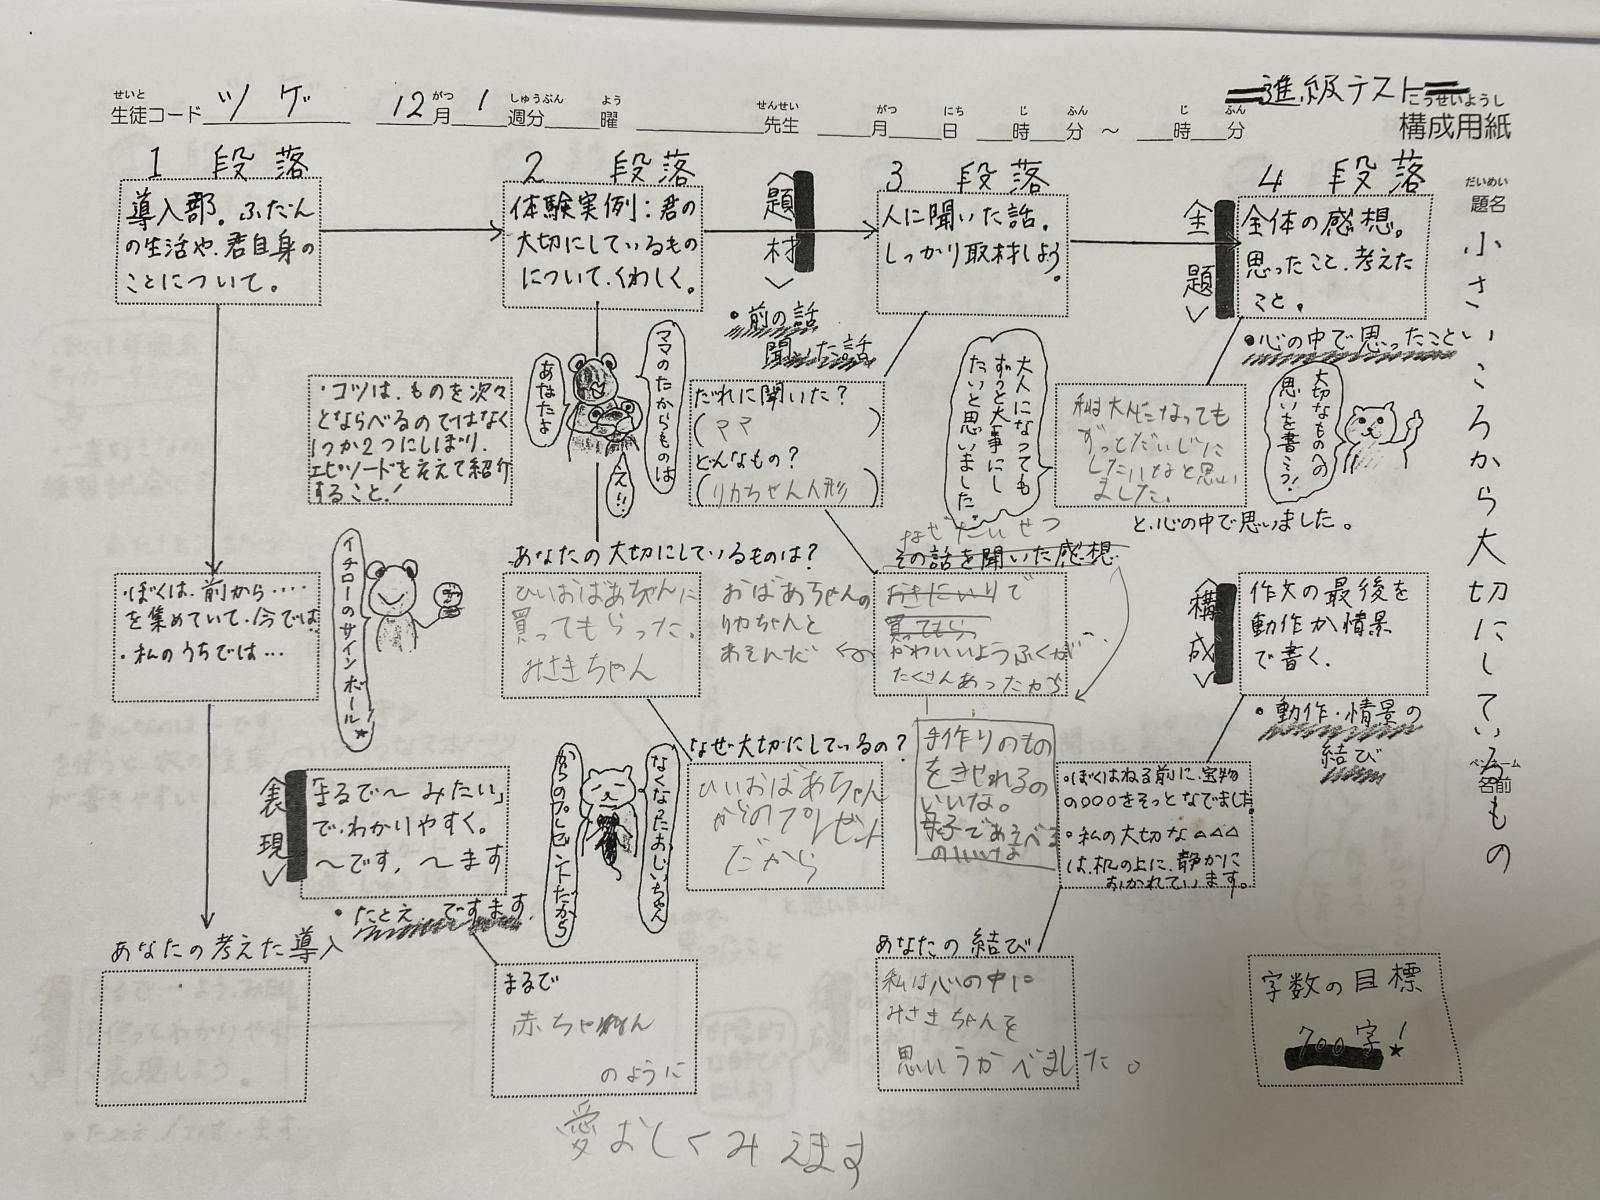 進級テスト
せいと
生徒コード ツゲ
がつ
12月
しゅうぶん
1週分
よう
曜
せんせい
先生
がつ
月
にち
日
じ
時
ふん
分
～
じ
時
ふん
分
こうせいようし
構成用紙
だいめい
題名
小さいころから大切にしているもの
ペンネーム
名前
1 段落
導入部。ふだん
の生活や、君自身の
ことについて。
・ぼくは、前から‥‥
を集めていて、今では
・私のうちでは…
あなたの考えた導入
イチローのサインボール!
〈表現〉
「まるで～みたい」
で、わかりやすく。
～です、～ます
・たとえ、ですます。
2 段落
体験実例:君の
大切にしているもの
について、くわしく。
・コツは、ものを次々
とならべるのではなく
1つか2つにしぼり、
エピソードをそえて紹介
すること!
あなたよ
ママのたからものは
え!!
あなたの大切にしているものは?
ひいおばあちゃんに
買ってもらった。
みさきちゃん
なぜ大切にしているの?
ひいおばあちゃん
からのプレゼント
だから
なくなったおじいちゃん
からのプレゼントだから
まるで
赤ちゃん
のように
愛おしくみえます
〈題材〉
・前の話
聞いた話
3 段落
人に聞いた話。
しっかり取材しよう。
だれに聞いた?
(ママ)
どんなもの?
(りかちゃん人形)
なぜたいせつ
その話を聞いた感想
おきにいりで
買ってもら
かわいいようふくが
たくさんあったから
おばあちゃんの
りかちゃんと
あそんだ
手作りのもの
をきせれるの
いいな。
母子であそべる
のいいな
大人になっても
ずっと大事にし
たいと思いました。
あなたの結び
私は心の中に
みさきちゃんを
思いうかべました。
〈主題〉
4 段落
全体の感想。
思ったこと、考えた
こと。
・心の中で思ったこと
大切なものへの
思いを書こう!
私は大人になっても
ずっとだいじに
したいなと思い
ました。
と、心の中で思いました。
〈構成〉
作文の最後を
動作か情景
で書く。
・動作・情景の
結び
・ぼくはねる前に、宝物
の○○○をそっとなでました。
・私の大切な△△△
は、机の上に、静かに
おかれています。
字数の目標
700字!